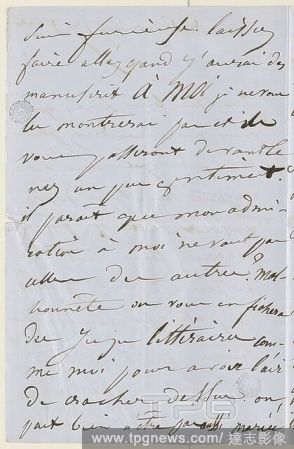 suis furieuse laissez
faire allez quand j'aurai des
manuscrit à MOI je ne vous
les montrerai pas et ils
vous passeront devant le
nez un peu
il parait que mon admi-
ration à moi ne vaut pas
celle des autres? Mal-
honnête on vous en fichera
des juges littéraires com-
me moi pour avoir l'air
de cracher dessus on
fait bien
www.tpgnews.com / 達志影像